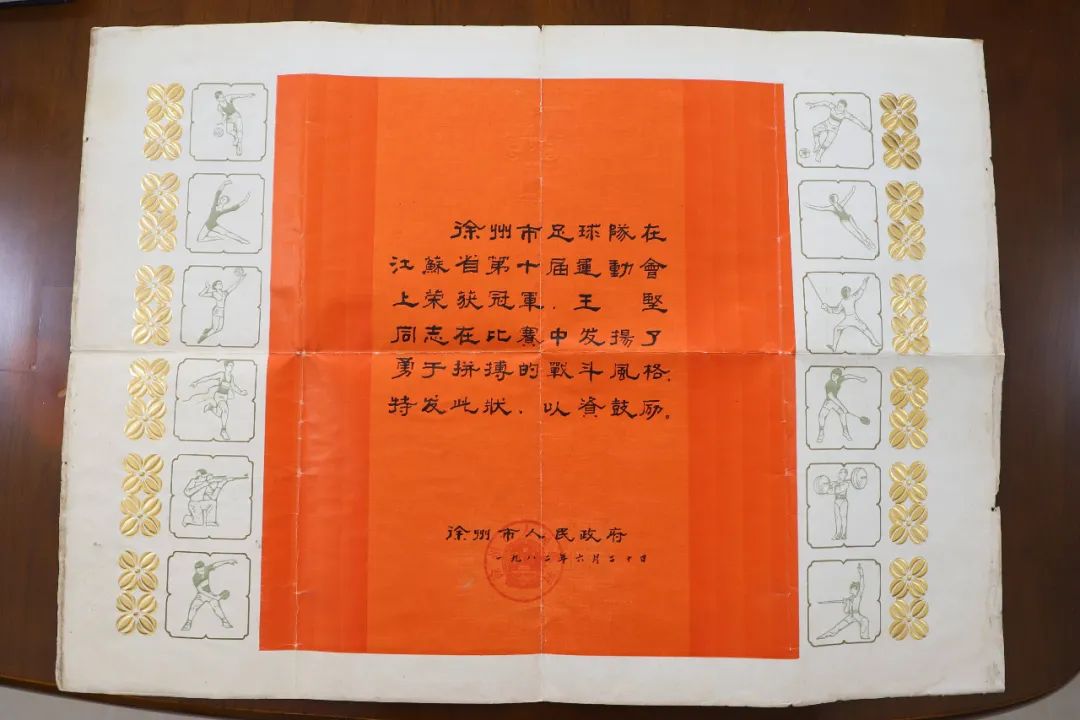 徐州市足球隊在
江蘇省第十届運動會
上荣获冠軍，王 堅
同志在比賽中发揚了
勇于拼搏的戰斗風格，
特发此状，以資鼓励。
徐州市人民政府
一九八二年六月二十日